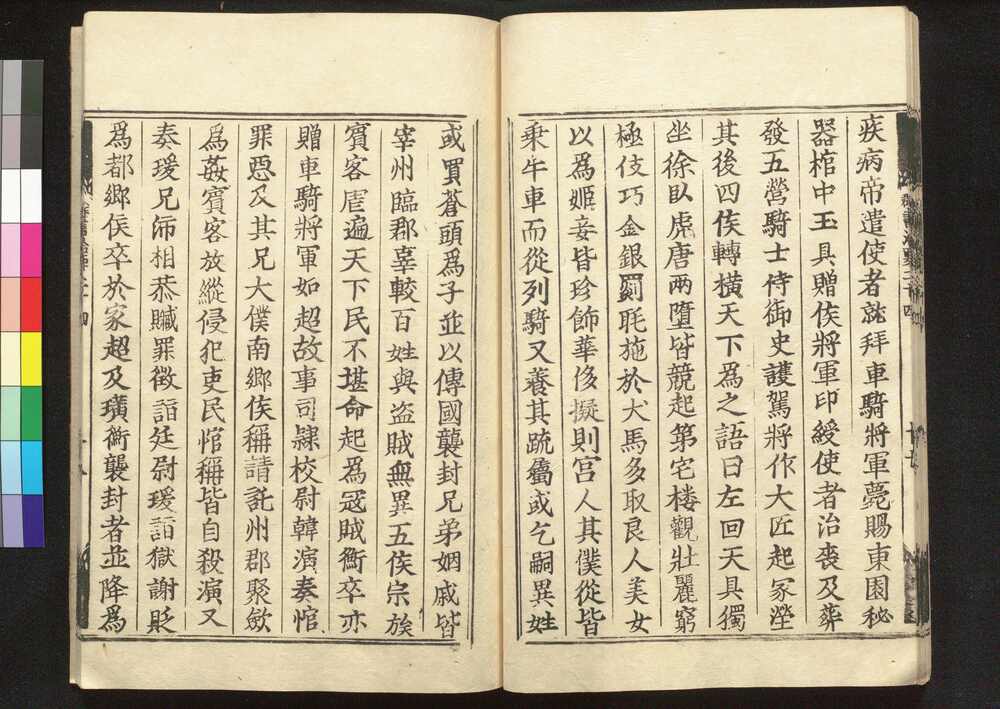 疾病帝遣使者就拜車騎將軍薨賜東園秘
器棺中玉具贈侯將軍印綬使者治喪及葬
發五營騎士侍御史護駕將作大匠起冢塋
其後四侯轉橫天下爲之語曰左回天具獨
坐徐臥虎唐兩墮皆競起第宅楼觀壯麗窮
極伎巧金銀罽毦施於犬馬多取良人美女
以爲姬妾皆珍飾華侈擬則宫人其僕從皆
乗牛車而從列騎又養其疏屬或乞嗣異姓
或買蒼頭爲子並以傳國襲封兄弟姻戚皆
宰州臨郡辜較百姓與盗賊無異五侯宗族
賓客虐遍天下民不堪命起爲冦賊衡卒亦
贈車騎將軍如超故事司隷校尉韓演奏悺
罪惡及其兄大僕南鄉侯稱請託州郡聚歛
爲姦賓客放縱侵犯吏民悺稱皆自殺演又
奏瑗兄沛相恭贓罪徴詣廷尉瑗詣獄謝貶
爲都鄉侯卒於家超及璜衡襲封者並降爲